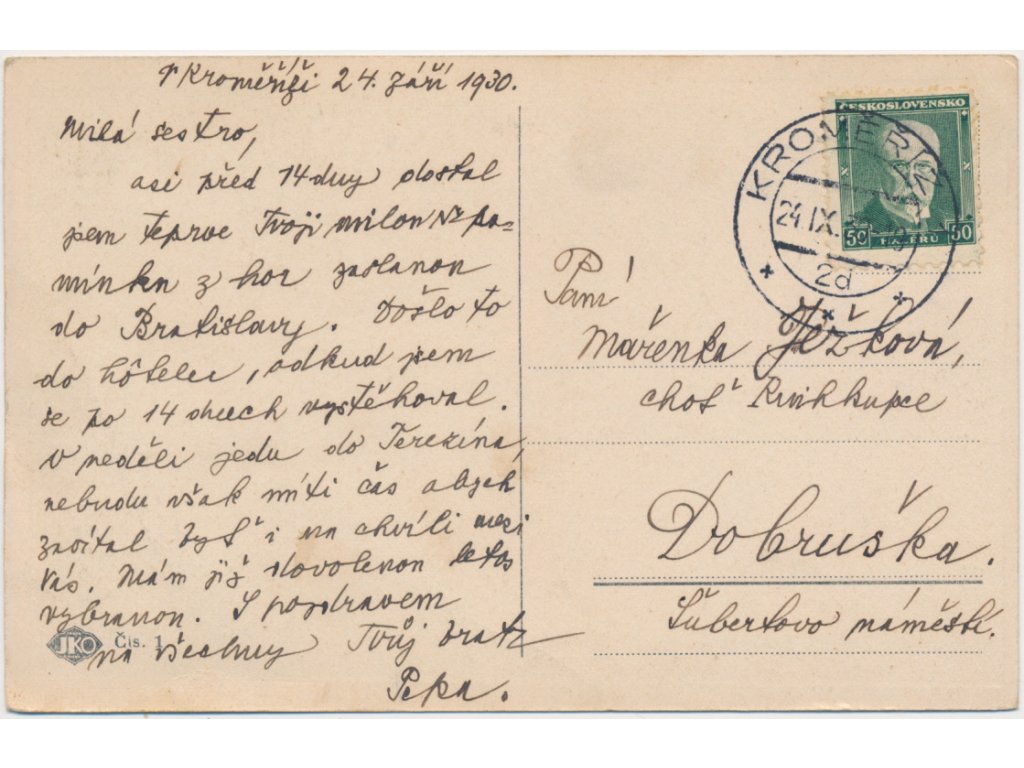 V Kroměříži 24. září 1930.
Milá sestro,
asi před 14 dny dostal
jem teprve Tvoji milou Vzpo-
mínku z hor zaslanou
do Bratislavy. Došlo to
do hôtelu, odkud jsem
se po 14 dnech vystěhoval.
V neděli jedu do Terezína,
nebudu však míti čas abych
zavítal byť i na chvíli mezi
Vás. Mám již dovolenou letos
vybranou. S pozdravem
na všechny Tvůj bratr
Pepa.
JKO Čís. 1
ČESKOSLOVENSKO
50 HALÉŘŮ 50
KROMĚŘÍŽ
24.IX.
2d
Paní
Mařenka Ježková,
choť knihkupce
Dobruška.
Šubertovo náměstí.